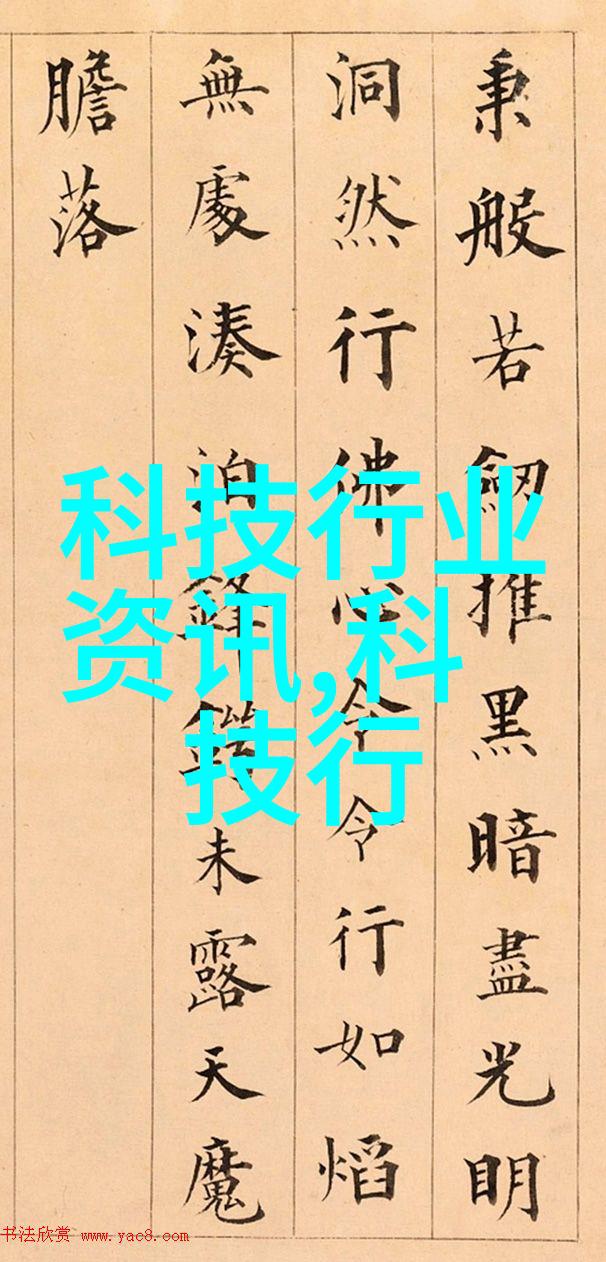 秉般若劔推黑暗盡光明
洞然行佛心令令行如熖
無處湊泊鋒未露天魔
膽落
科技行业
资讯,科
技行
书法欣赏 www.yac8.com